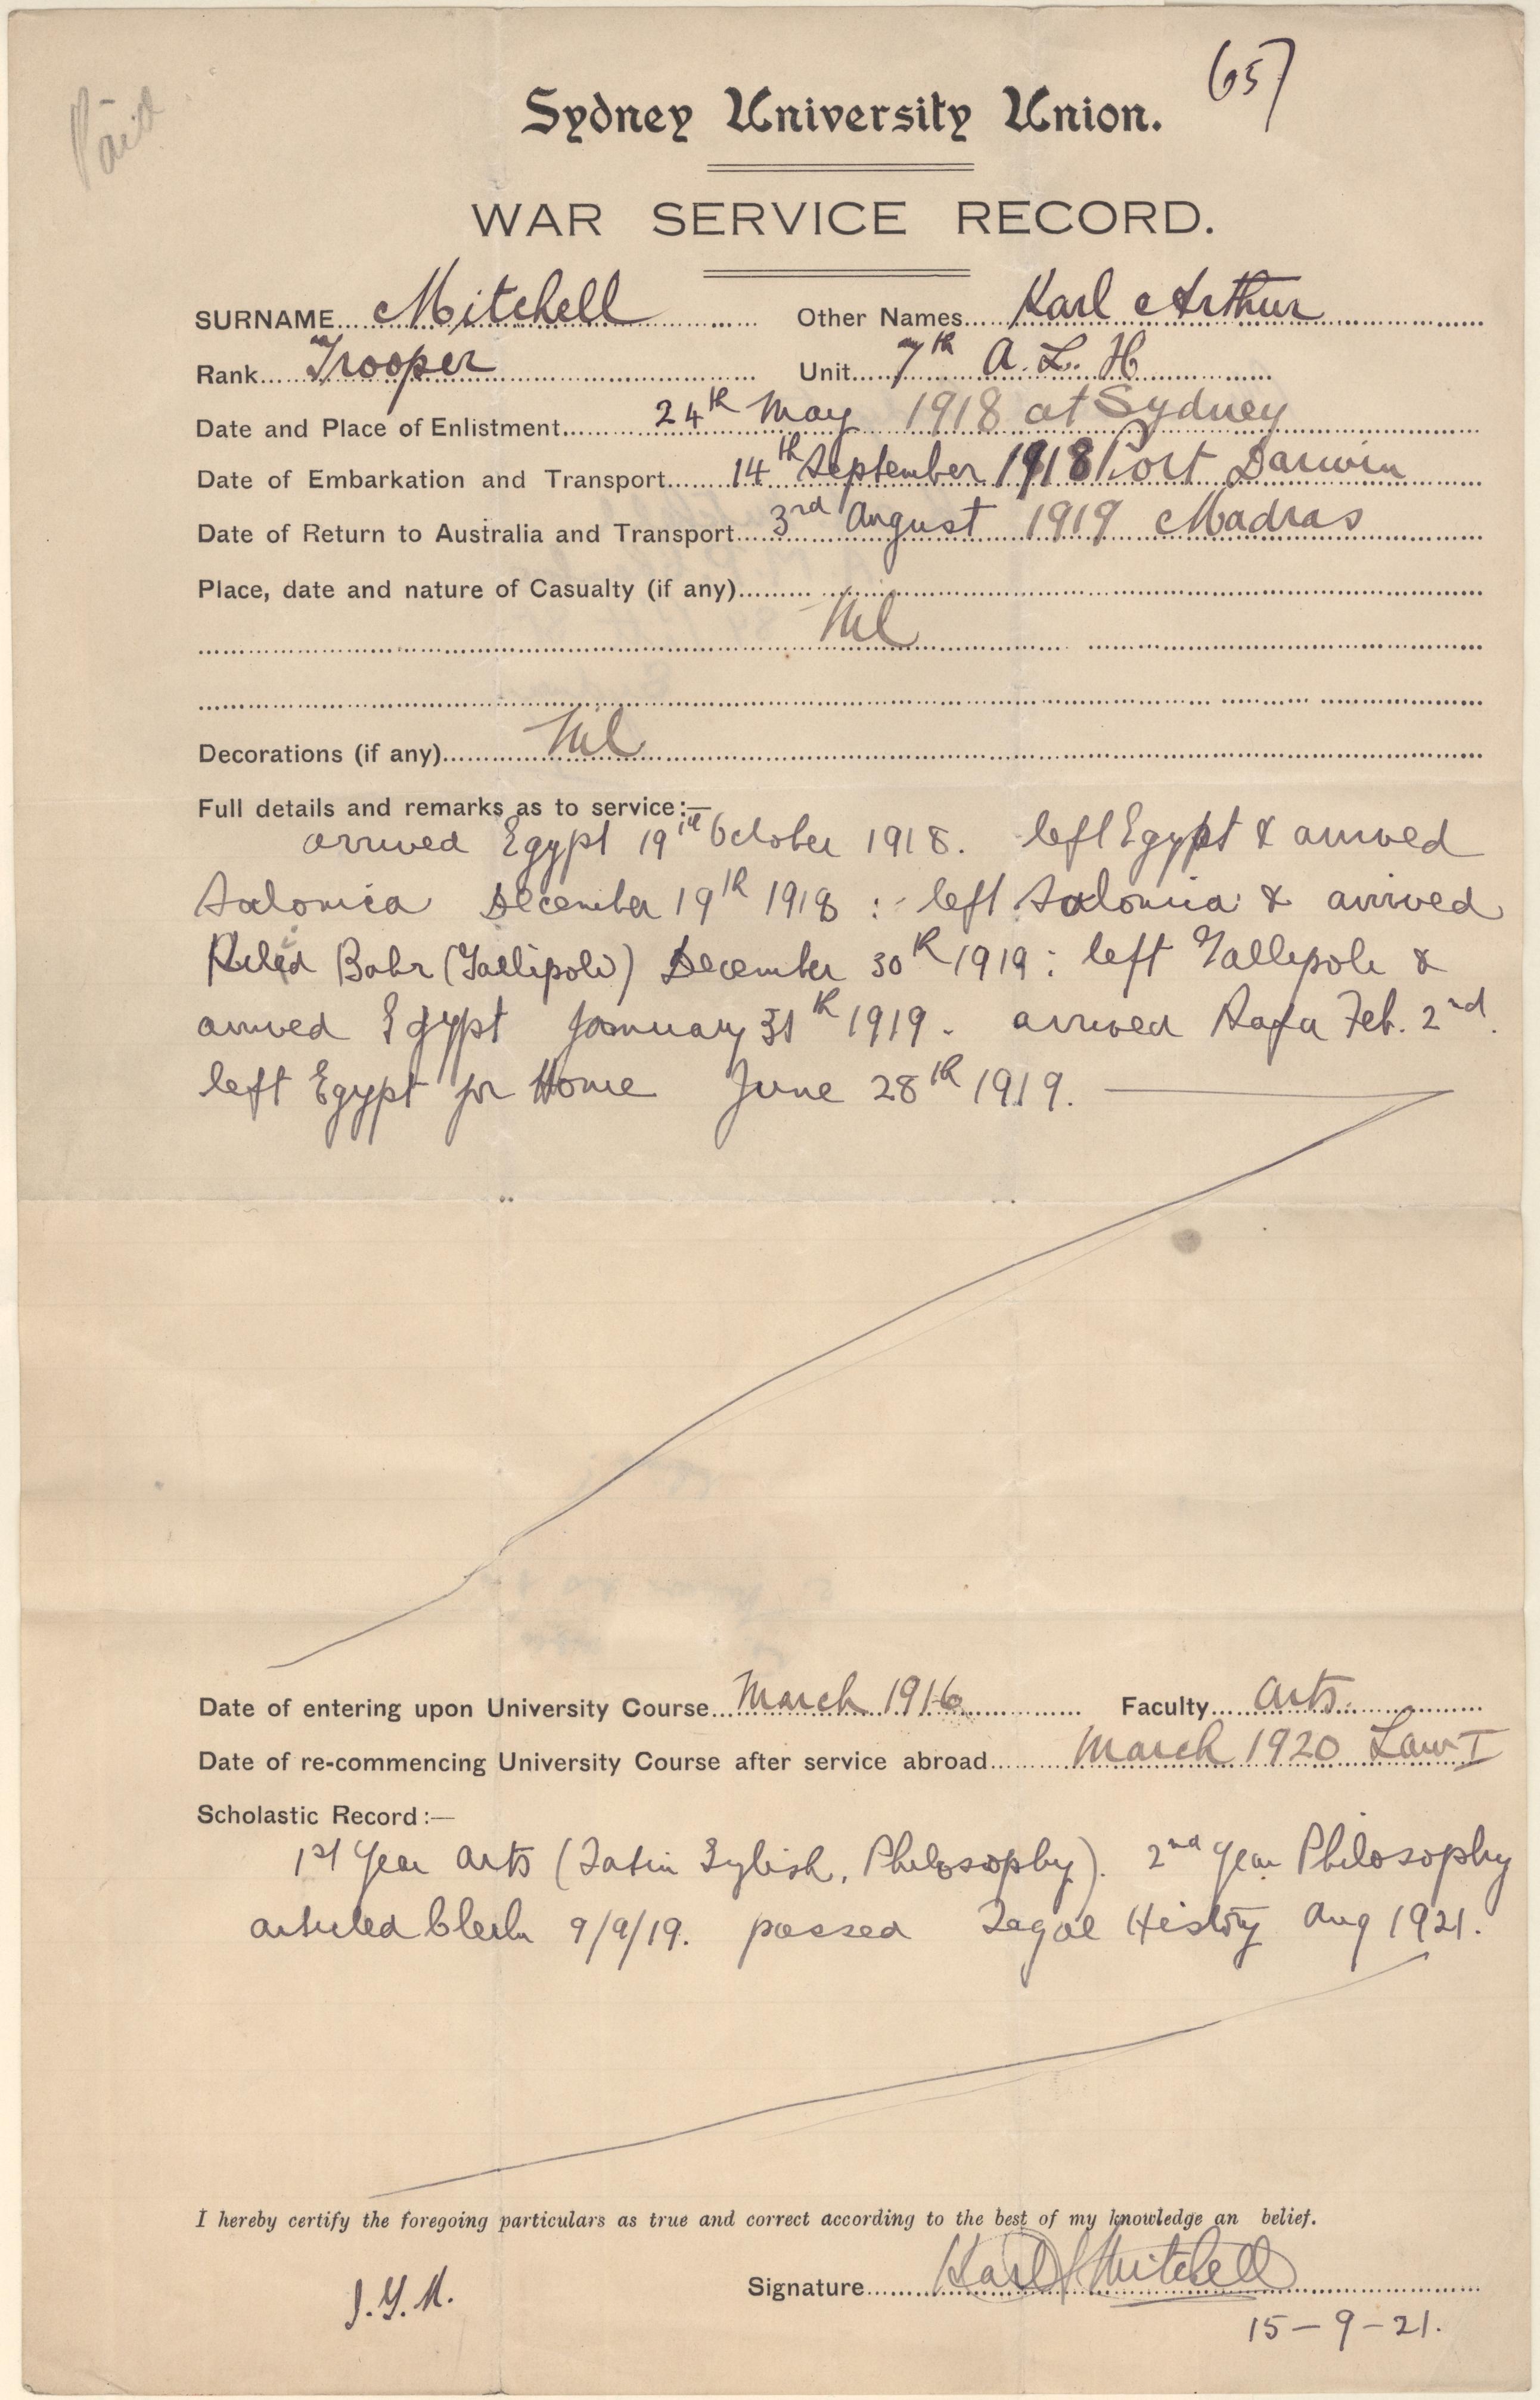 Paid
65
Sydney University Union.
WAR SERVICE RECORD.
SURNAME Mitchell Other Names Karl Arthur
Rank Trooper Unit 7th A. L. H
Date and Place of Enlistment 24th May 1918 at Sydney
Date of Embarkation and Transport 14th September 1918 Port Darwin
Date of Return to Australia and Transport 3rd August 1919 Madras
Place, date and nature of Casualty (if any)
Nil
Decorations (if any) Nil
Full details and remarks as to service:—
arrived Egypt 19th October 1918. left Egypt & arrived
Salonica December 19th 1918 :- left Salonica & arrived
Bahr (Gallipoli) December 30th 1919: left Gallipoli &
arrived Egypt January 31th 1919. arrived Rafa Feb. 2nd.
left Egypt for Home June 28th 1919.
Date of entering upon University Course March 1916 Faculty Arts.
Date of re-commencing University Course after service abroad March 1920 Law I
Scholastic Record:—
1st Year Arts (Latin English, Philosophy). 2nd Year Philosophy
articled Clerk 9/9/19. passed Legal History Aug 1921.
I hereby certify the foregoing particulars as true and correct according to the best of my knowledge an belief.
J.G.M. Signature Karl A Mitchell
15-9-21.